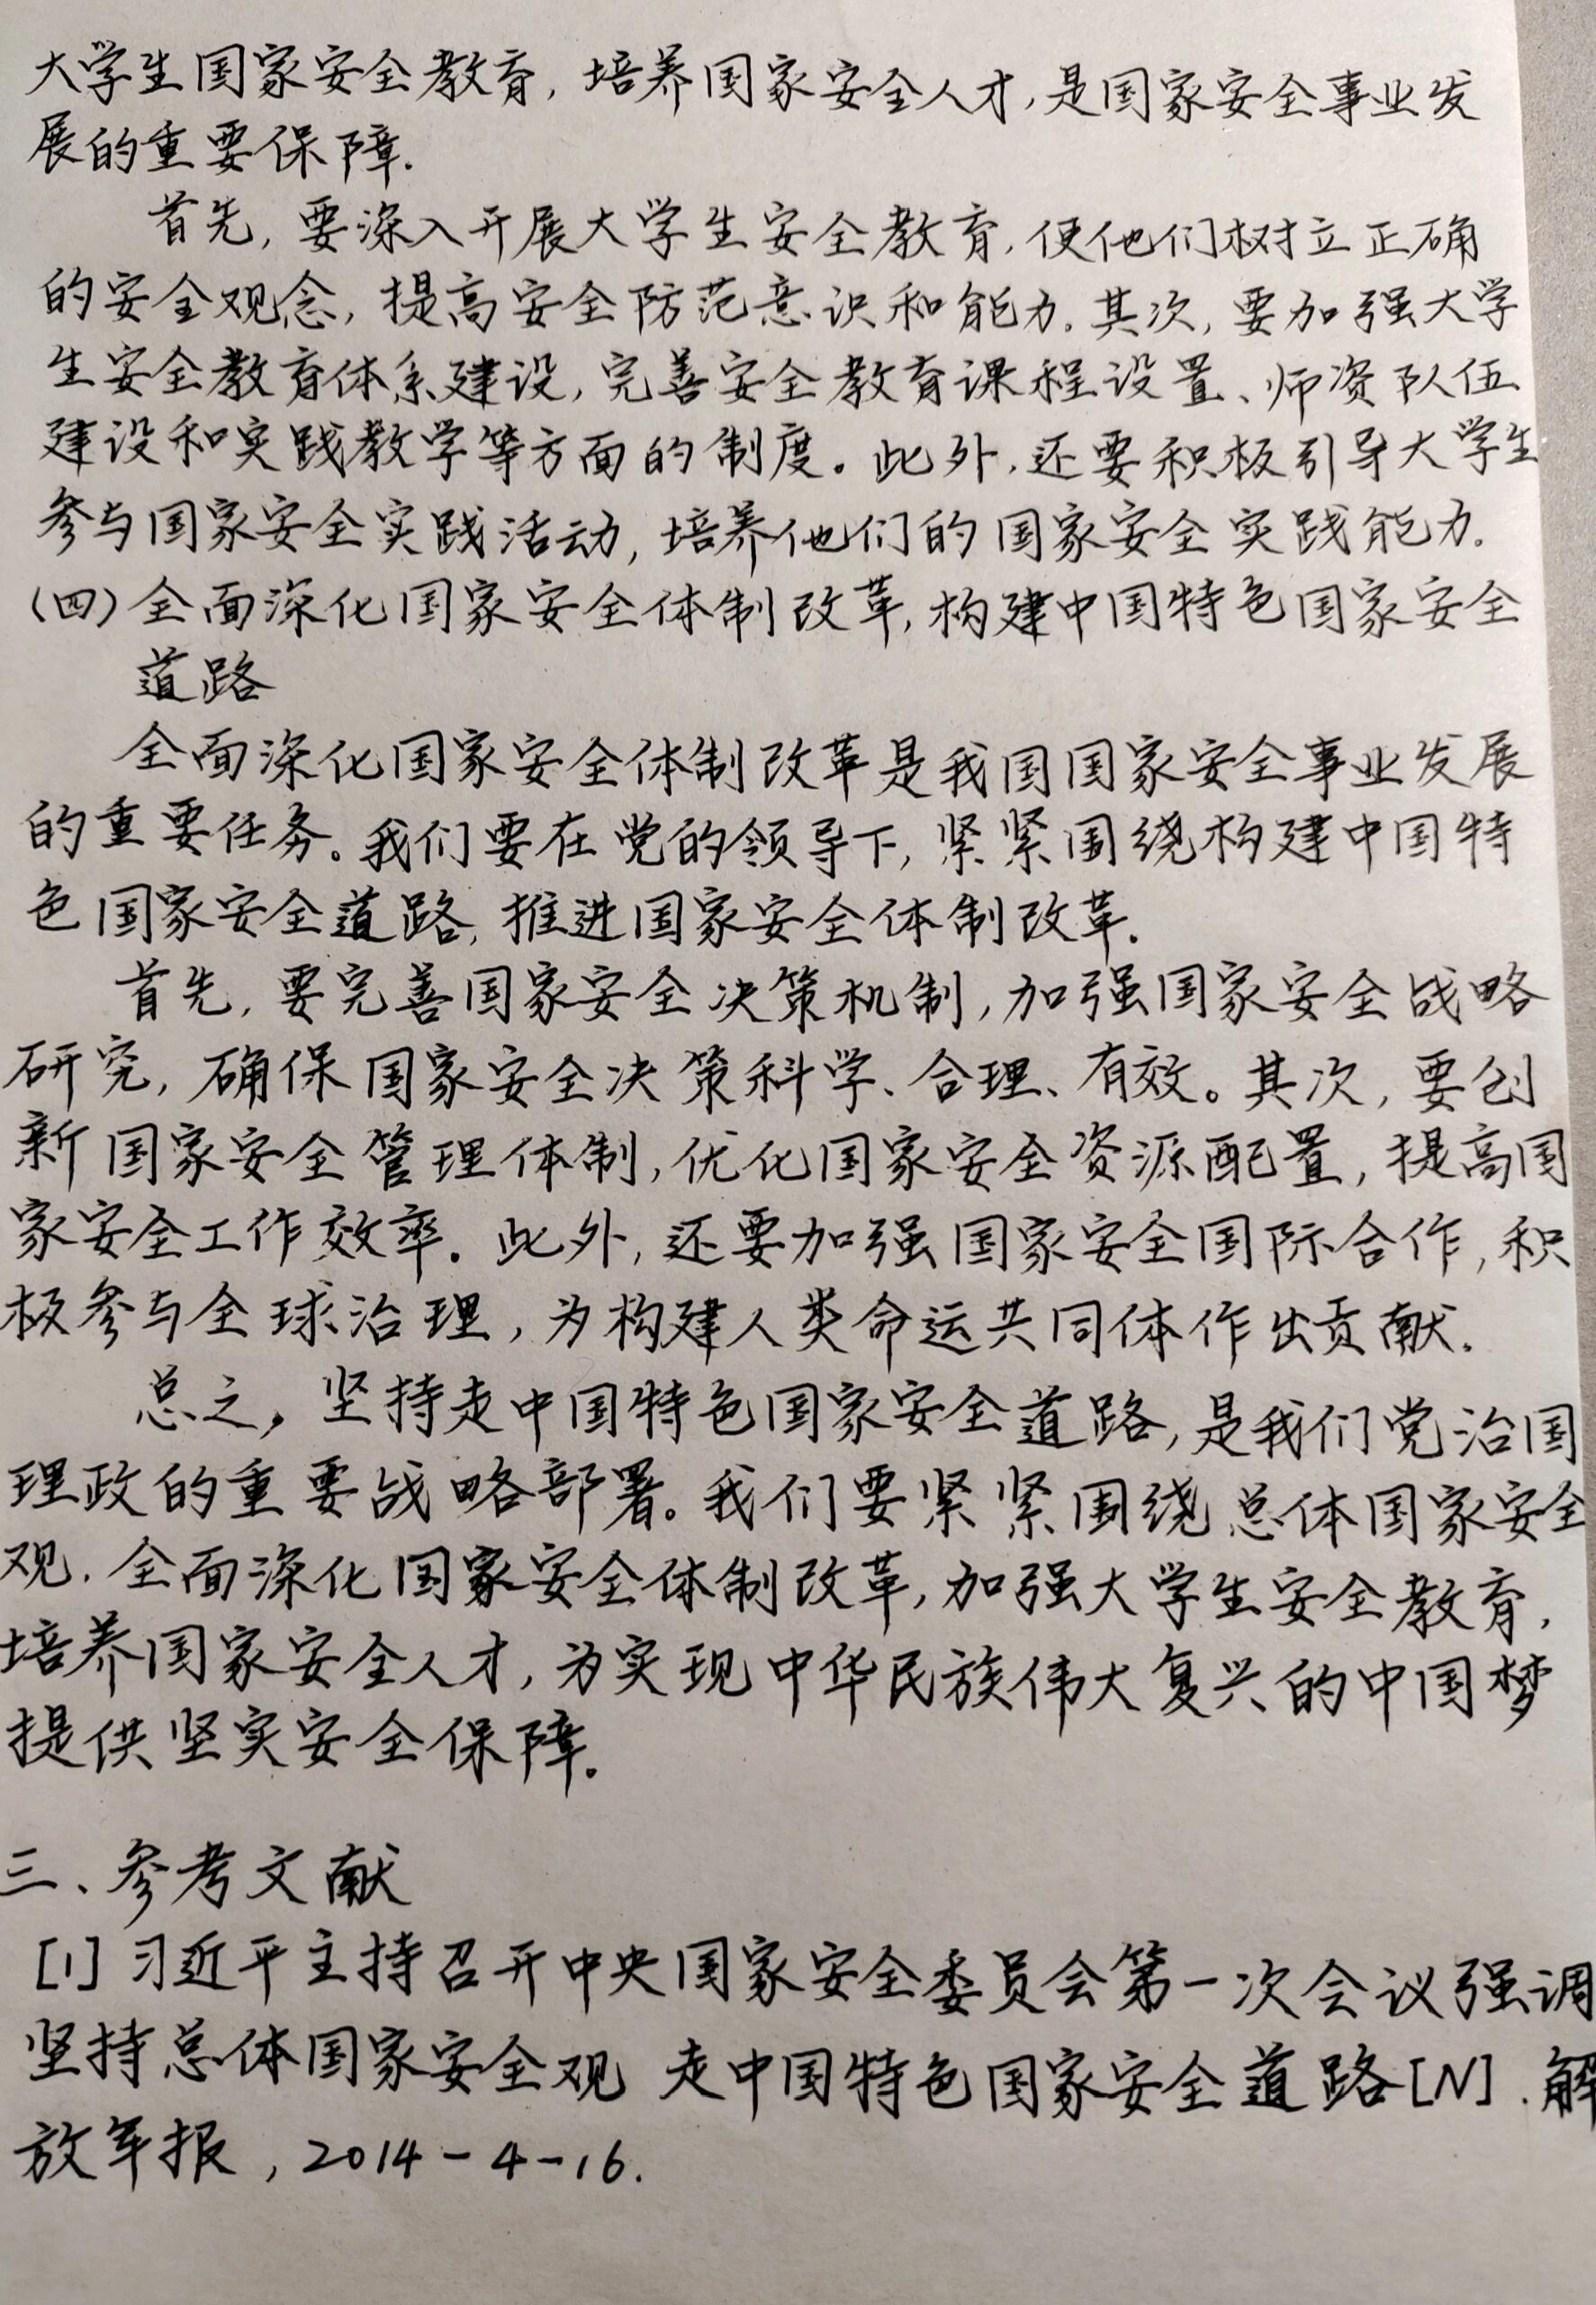 大学生国家安全教育,培养国家安全人才,是国家安全事业发
展的重要保障.
首先,要深入开展大学生安全教育,使他们树立正确
的安全观念,提高安全防范意识和能力.其次,要加强大学
生安全教育体系建设,完善安全教育课程设置、师资队伍
建设和实践教学等方面的制度。此外,还要积极引导大学生
参与国家安全实践活动,培养他们的国家安全实践能力.
(四)全面深化国家安全体制改革,构建中国特色国家安全
道路
全面深化国家安全体制改革是我国国家安全事业发展
的重要任务。我们要在党的领导下,紧紧围绕构建中国特
色国家安全道路,推进国家安全体制改革.
首先,要完善国家安全决策机制,加强国家安全战略
研究,确保国家安全决策科学、合理、有效。其次,要创
新国家安全管理体制,优化国家安全资源配置,提高国
家安全工作效率.此外,还要加强国家安全国际合作,积
极参与全球治理,为构建人类命运共同体作出贡献.
总之,坚持走中国特色国家安全道路,是我们党治国
理政的重要战略部署。我们要紧紧围绕总体国家安全
观.全面深化国家安全体制改革,加强大学生安全教育,
培养国家安全人才,为实现中华民族伟大复兴的中国梦
提供坚实安全保障。
三、参考文献
[1]习近平主持召开中央国家安全委员会第一次会议强调
坚持总体国家安全观 走中国特色国家安全道路[N].解
放军报,2014-4-16.